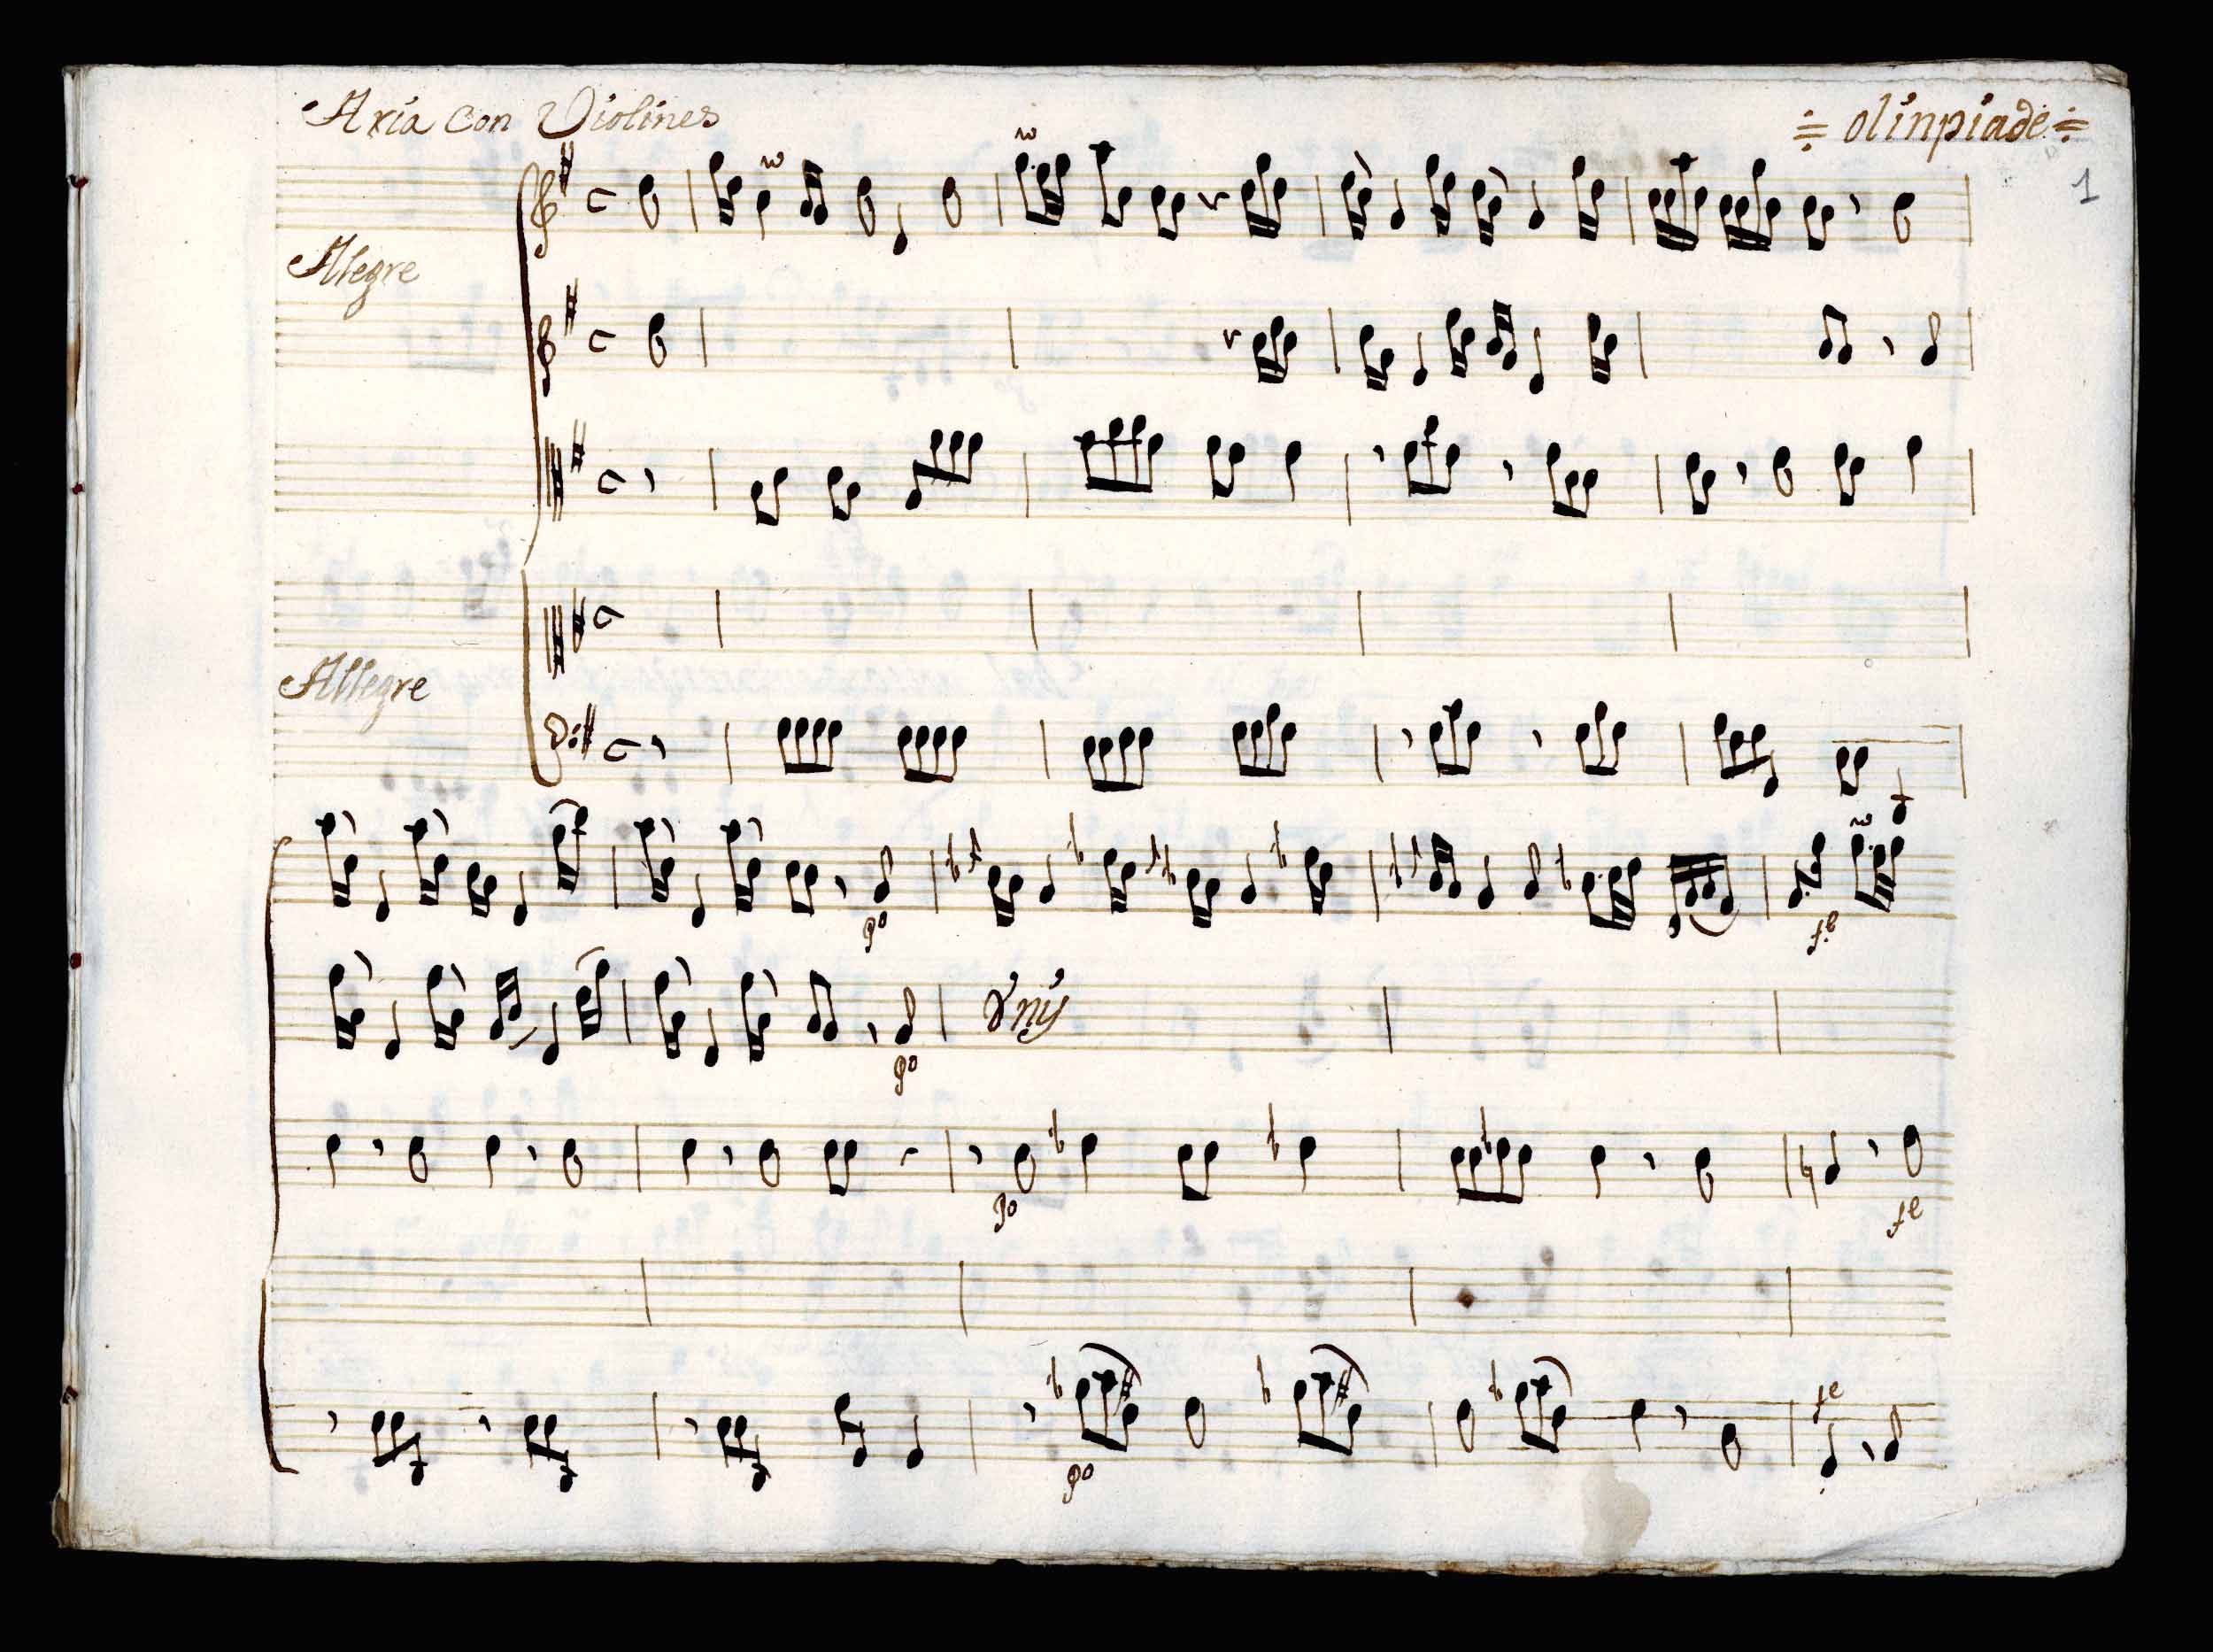 Aria Con Violines
= olinpiade =
1
Alegre
Allegre
po
fe
po
po
fe
fe
po